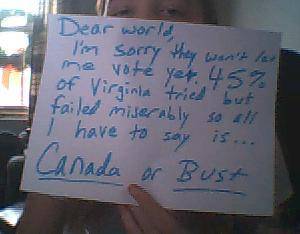 Dear world,
I'm sorry they won't let
me vote yet. 45%
of Virginia tried but
failed miserably so all
I have to say is...
Canada or Bust